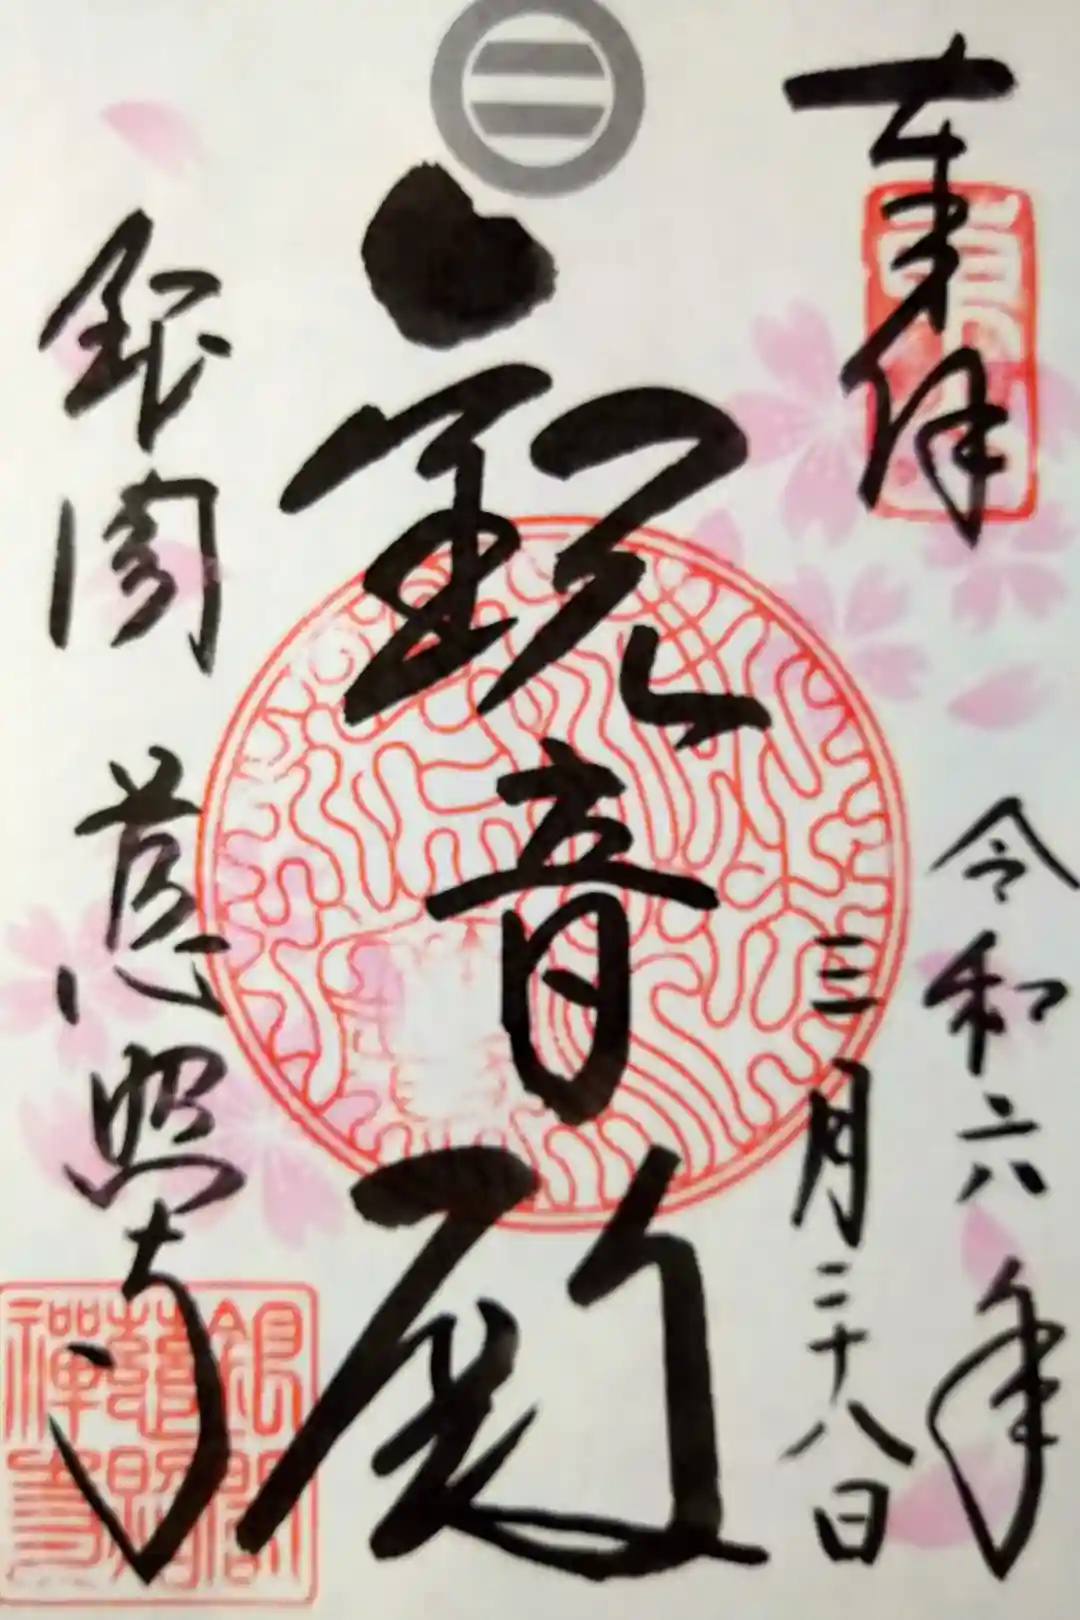 奉拝
令和六年
三月二十八日
観音殿
銀閣 慈照寺
銀閣
慈照
禅寺